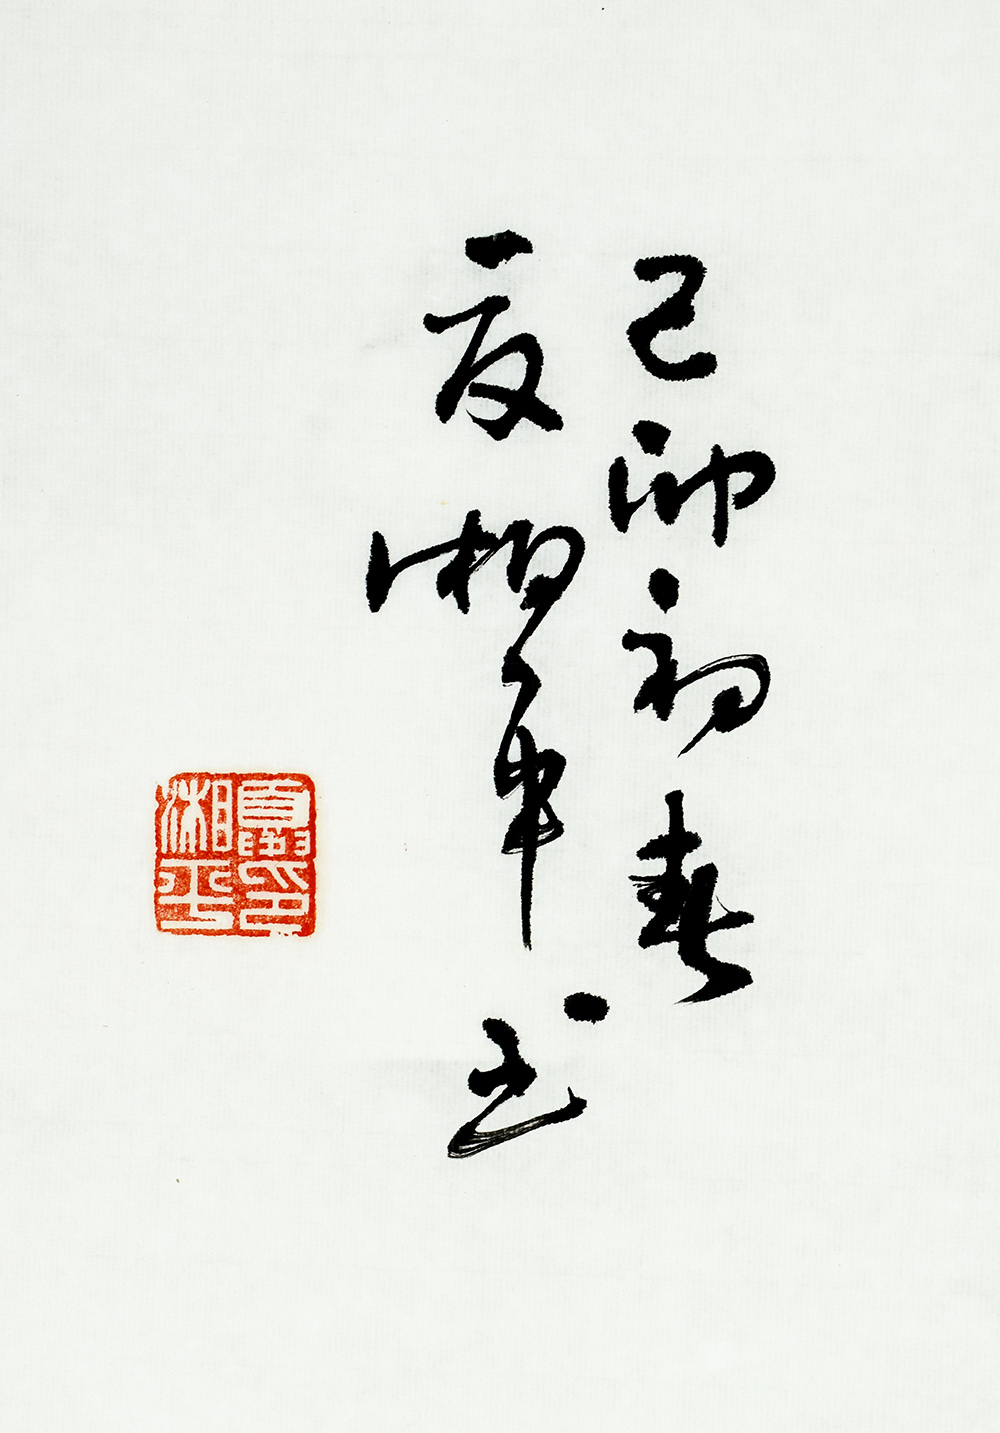 己卯初春
夏湘平书
夏印
湘平